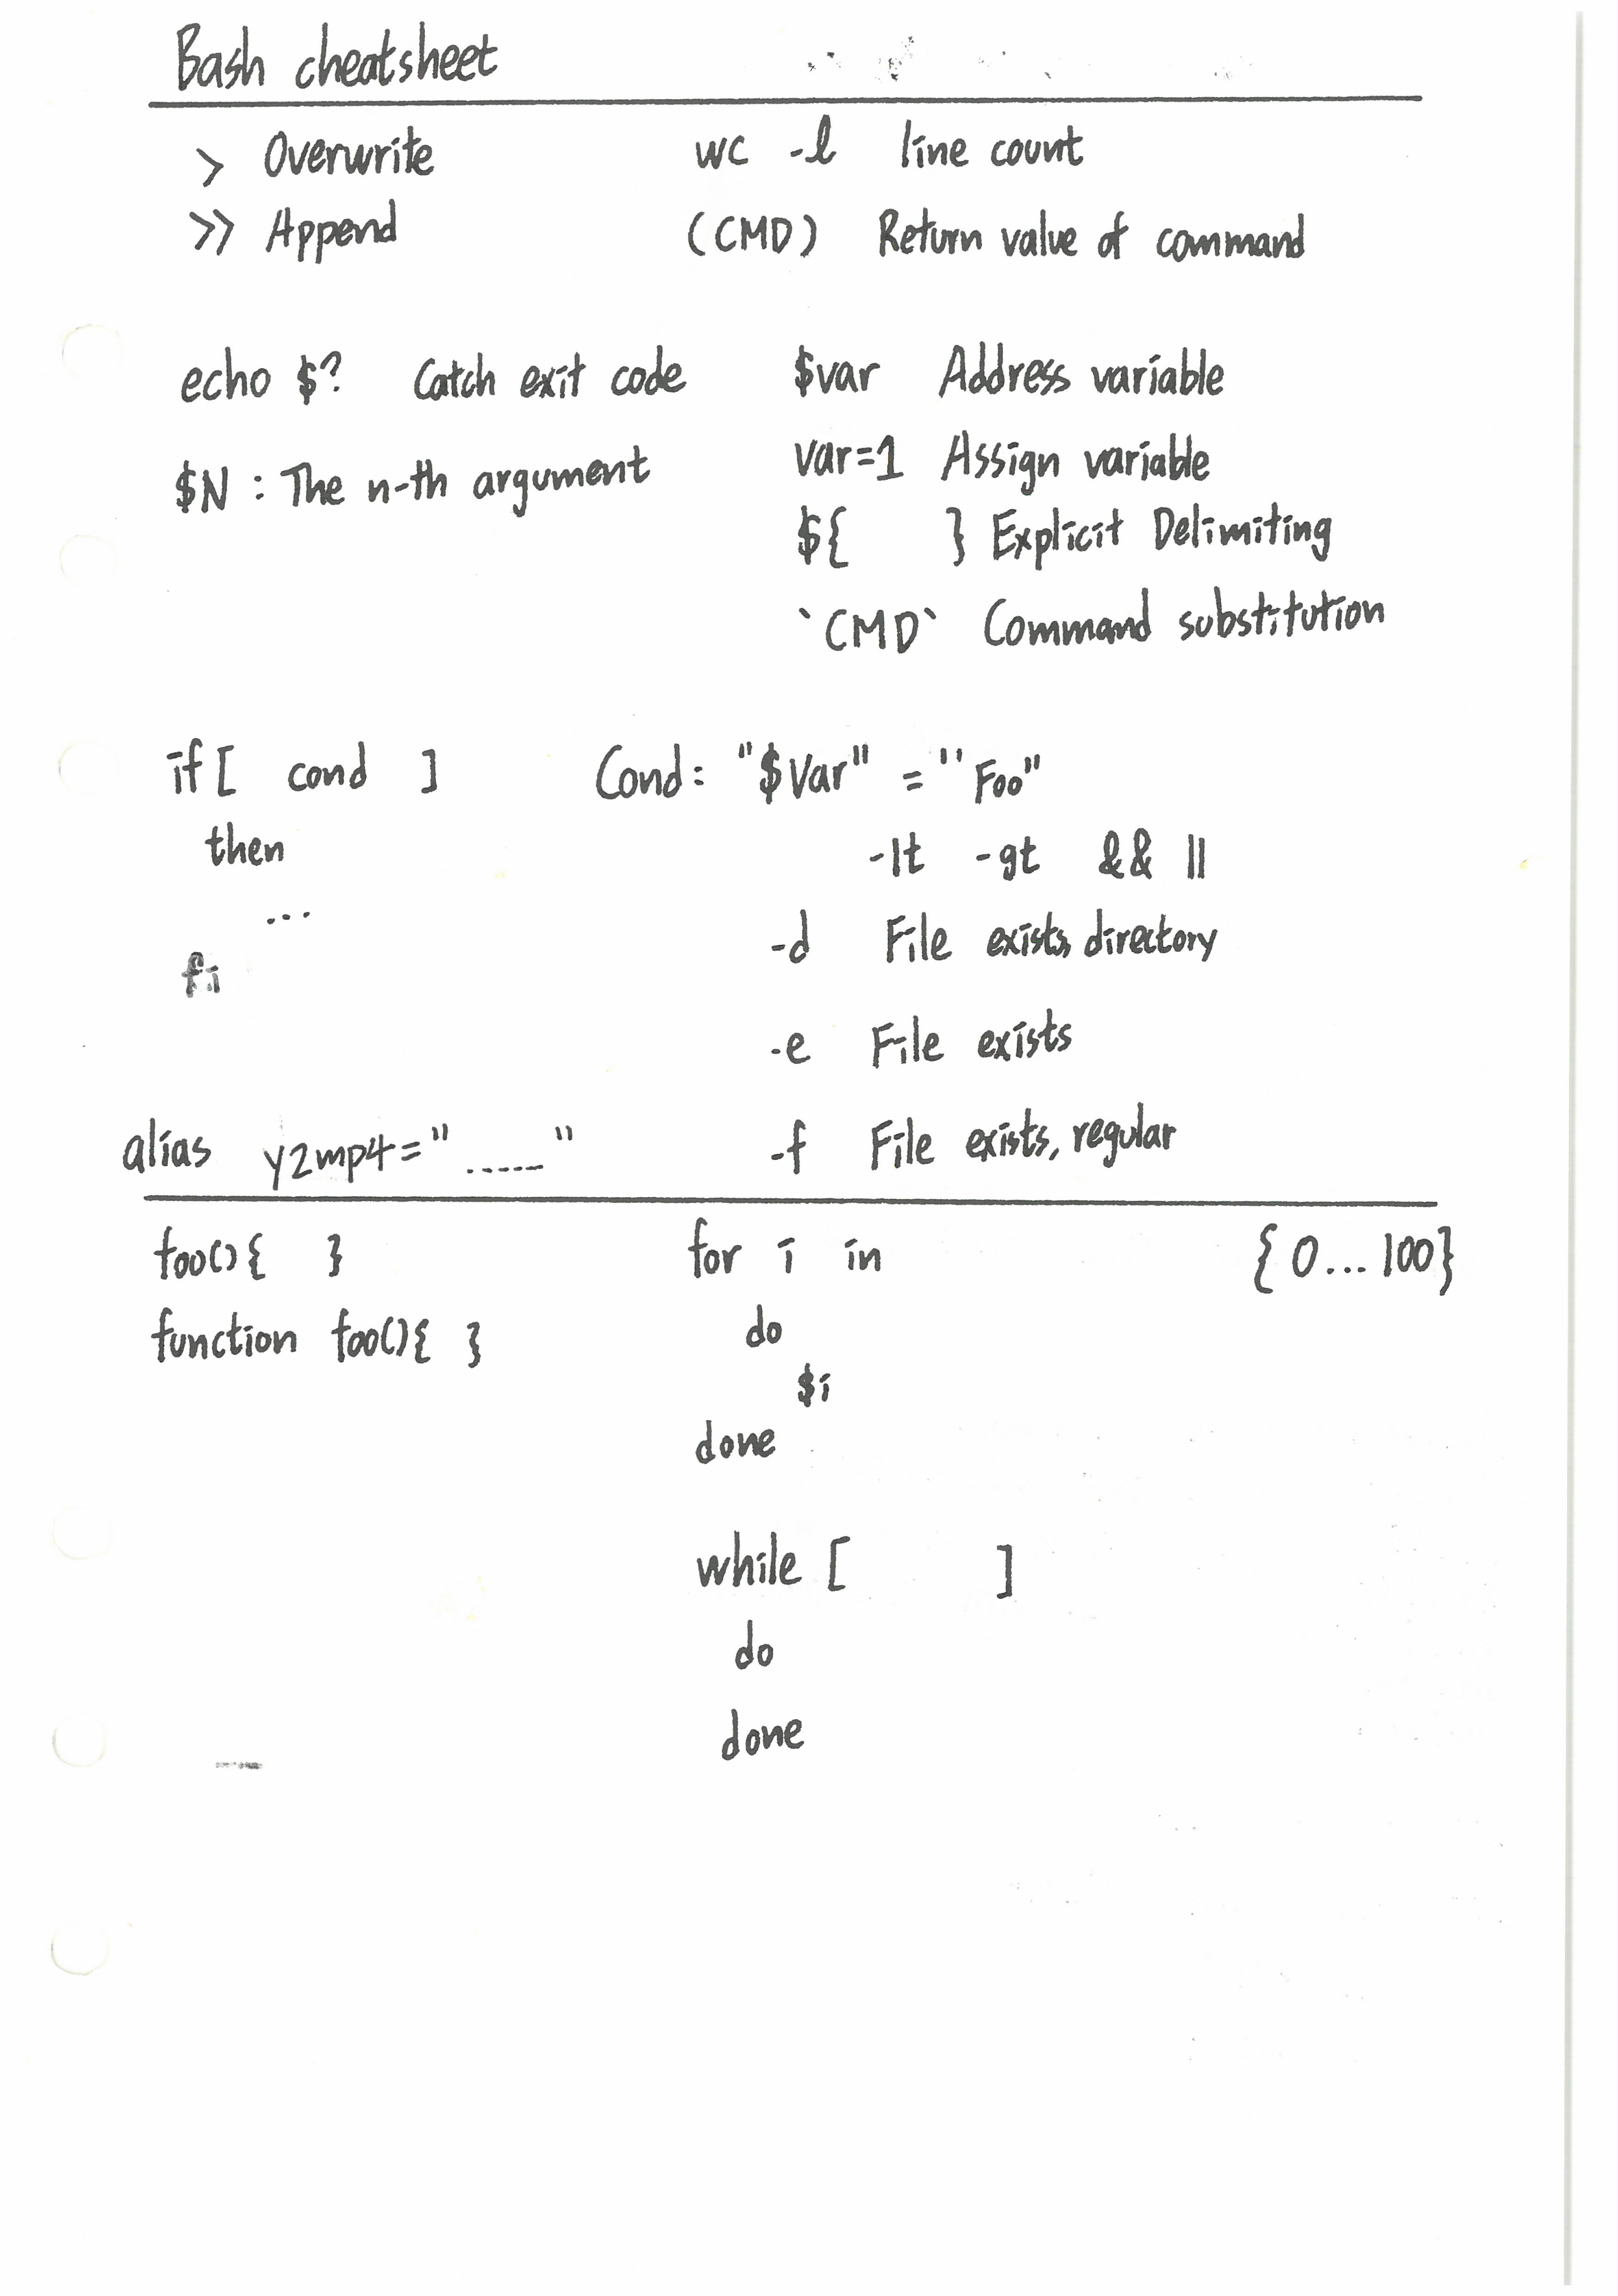 Bash cheatsheet
> Overwrite
>> Append
wc -l line count
(CMD) Return value of command
echo $? Catch exit code
$N : The n-th argument
$var Address variable
var=1 Assign variable
${ } Explicit Delimiting
`CMD` Command substitution
if [ cond ]
then
...
fi
Cond: "$Var" = "Foo"
-lt -gt && ||
-d File exists, directory
-e File exists
-f File exists, regular
alias y2mp4="....."
foo(){ }
function foo(){ }
for i in {0...100}
do
$i
done
while [ ]
do
done